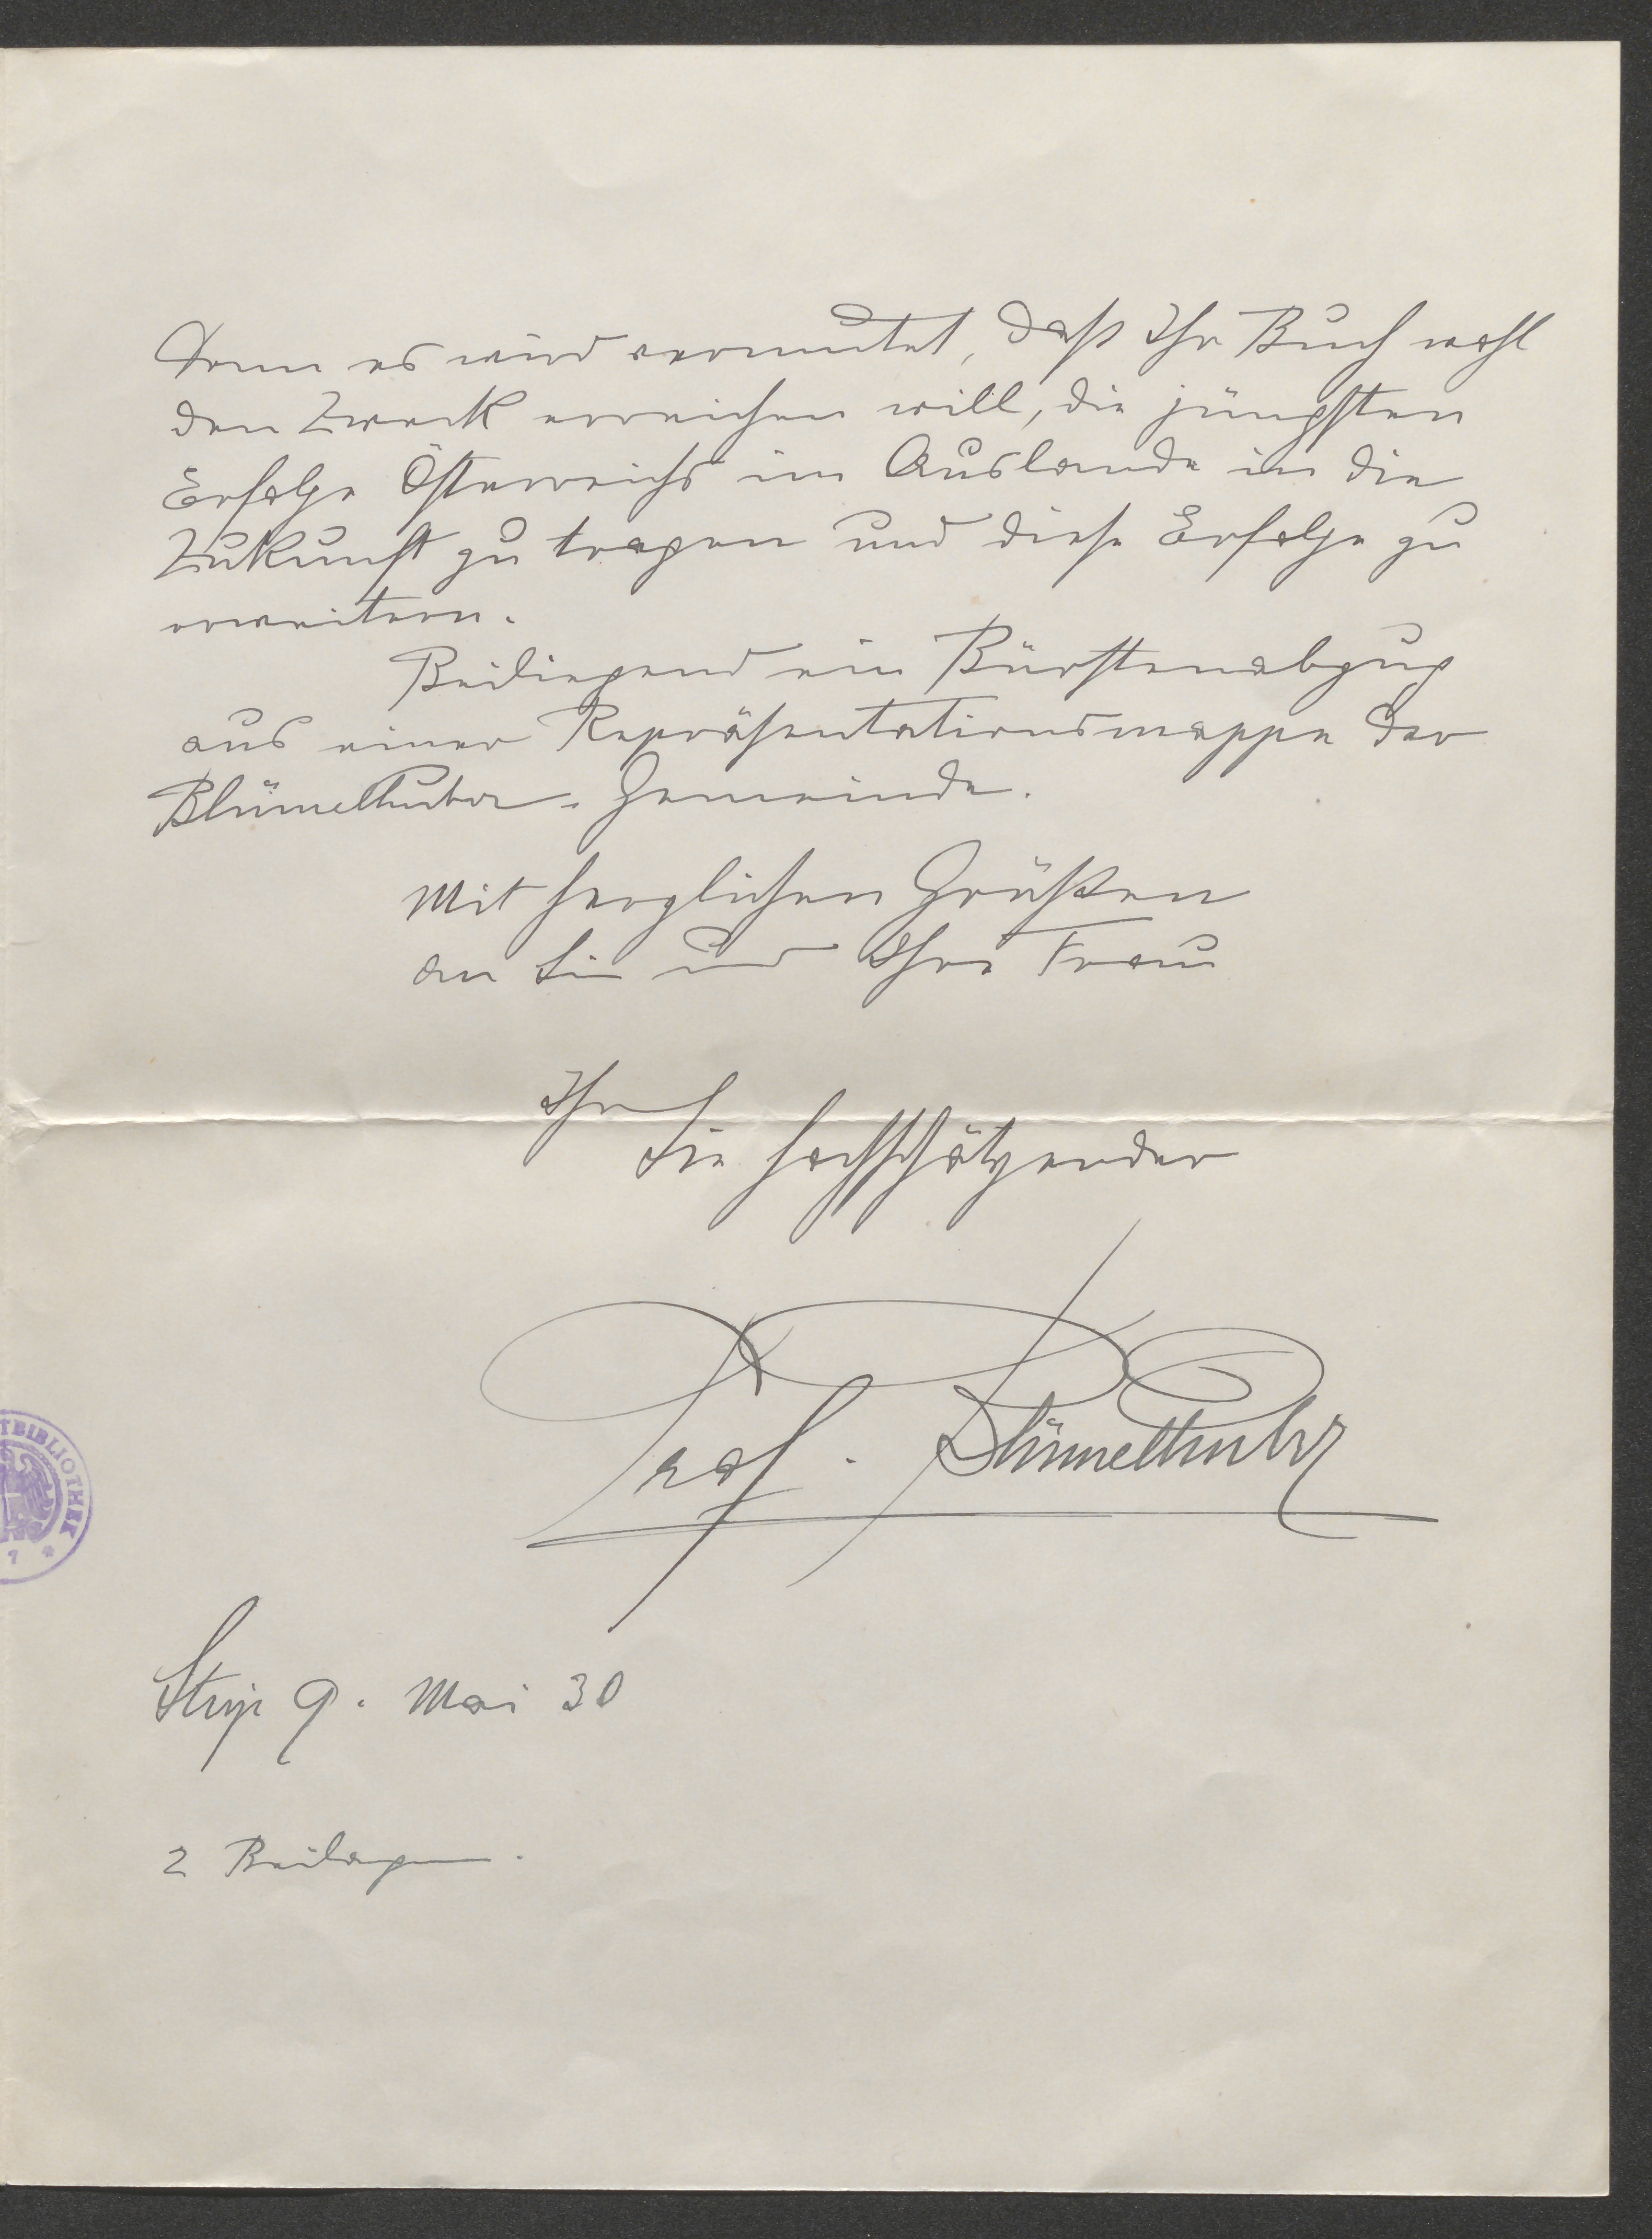 Denn es wird vermutet, daß Ihr Buch wohl
den Zweck erreichen will, die jüngsten
Erfolge Österreichs im Auslande in die
Zukunft zu tragen und diese Erfolge zu
erweitern.
Beiliegend ein Bürstenabzug
aus einer Repräsentationsmappe der
Blümelhuber-Gemeinde.
Mit herzlichen Grüßen
an Sie und Ihre Frau
Ihr
Sie hochschätzender
Prof. Blümelhuber
TBIBLIOTHEK
7 *
Steyr 9. Mai 30
2 Beilagen.